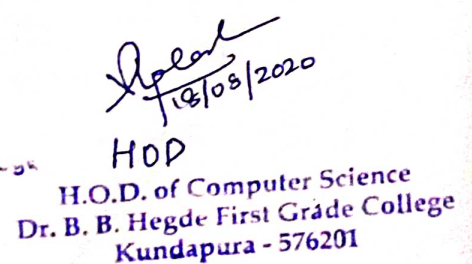 18/08/2020
HOD
H.O.D. of Computer Science
Dr. B. B. Hegde First Grade College
Kundapura - 576201